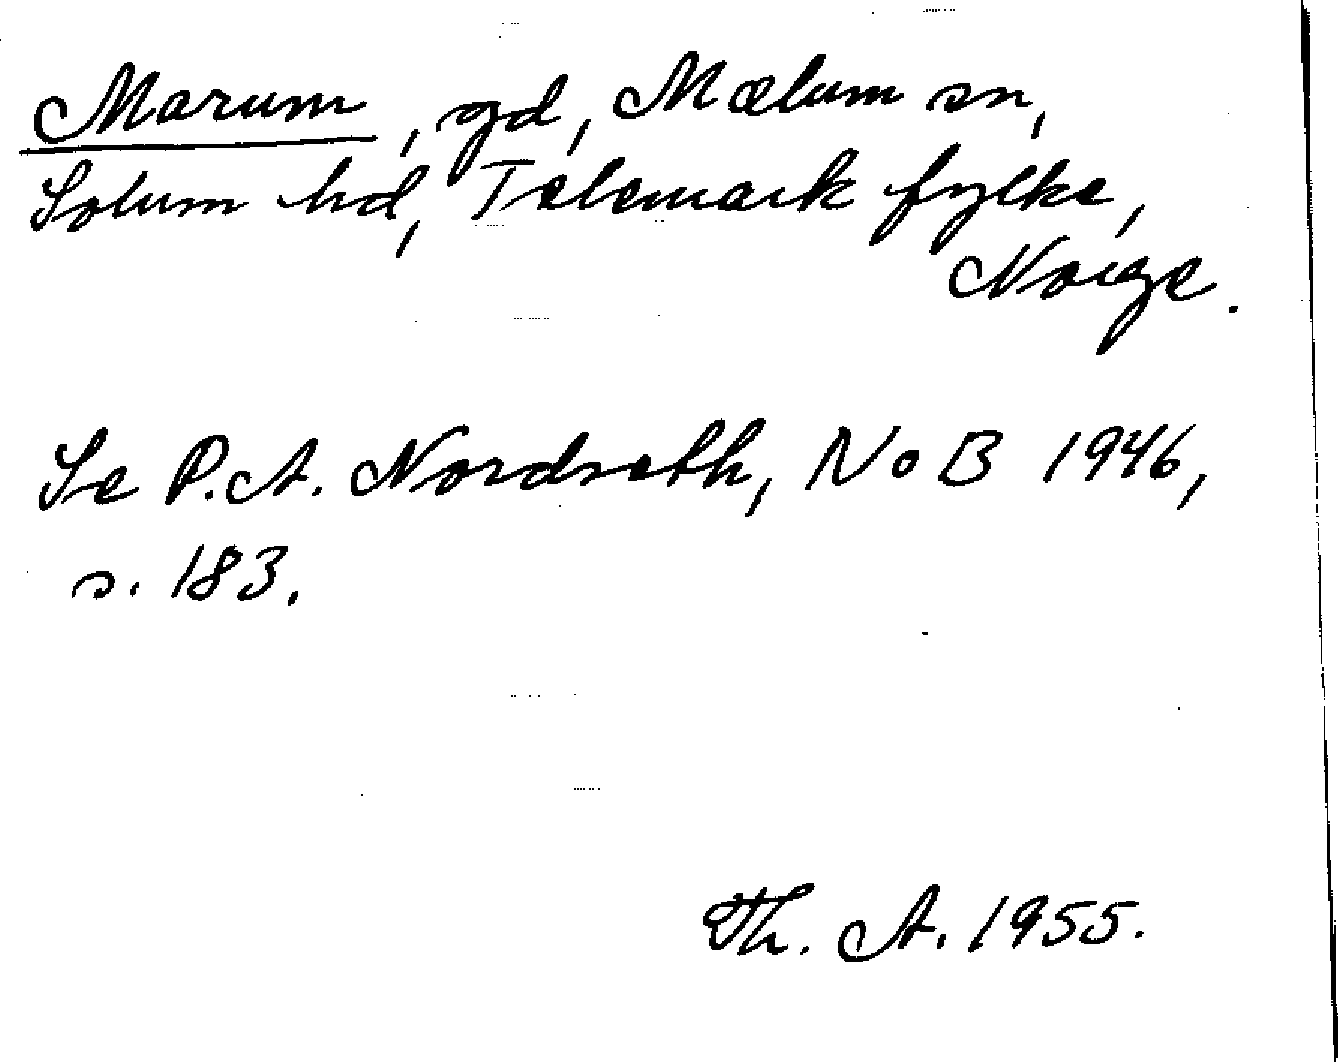 Marum, gd, Mælum sn,
Solum hd, Telemark fylke,
Norge.
Se P.A. Nordseth, NoB 1946,
s. 183.
Th. A. 1955.